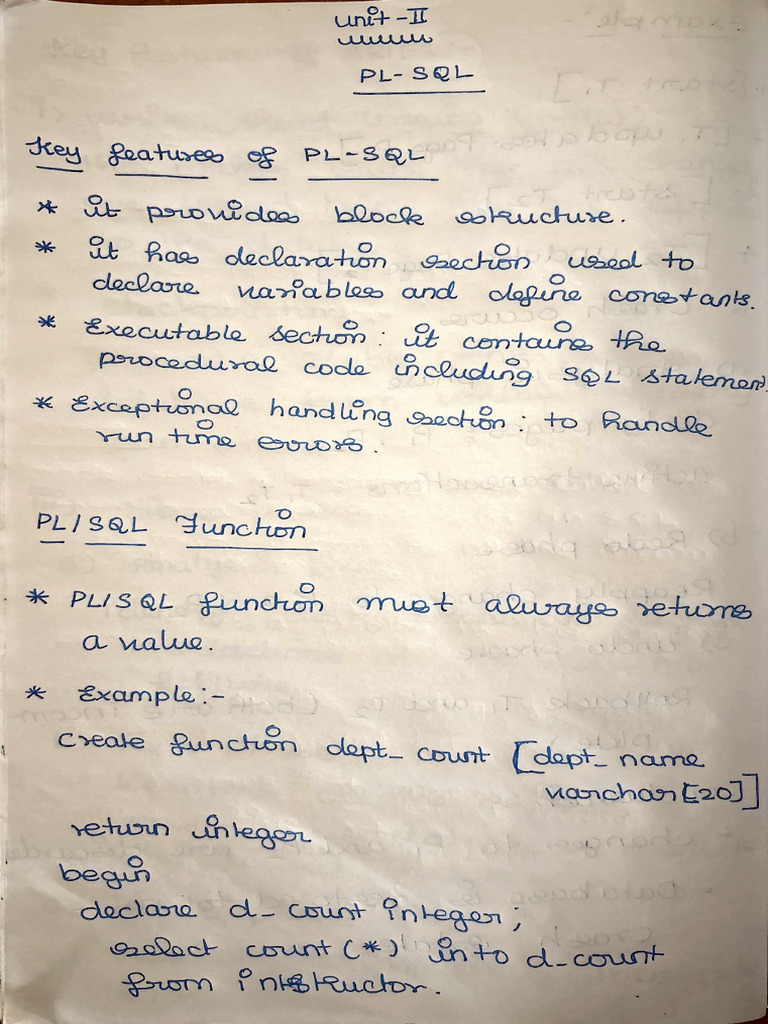 Unit - II
PL- SQL
Key features of PL-SQL
* it provides block structure.
* it has declaration section used to
declare variables and define constants.
* Executable section: it contains the
procedural code including SQL statement.
* Exceptional handling section: to handle
run time errors.
PL/SQL Function
* PL/SQL function must always returns
a value.
* Example:-
Create function dept_count [dept_name
varchar[20]]
return integer
begin
declare d_count integer;
select count(*) into d_count
from instructor.